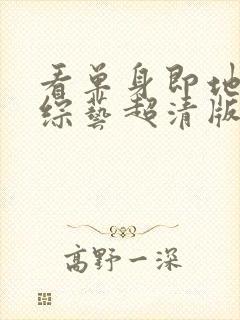 看单身即地
综藝超清版
高野一深